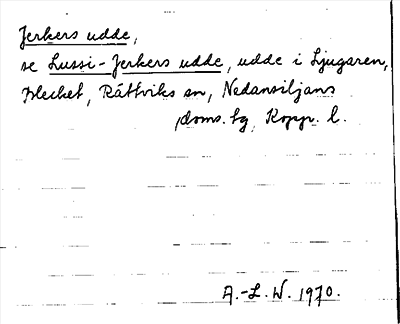 Jerkers udde,
se Lussi-Jerkers udde, udde i Ljugaren,
Blecket, Rättviks sn, Nedansiljans
doms. tg, Kopp. l.
A.-L. W. 1970.